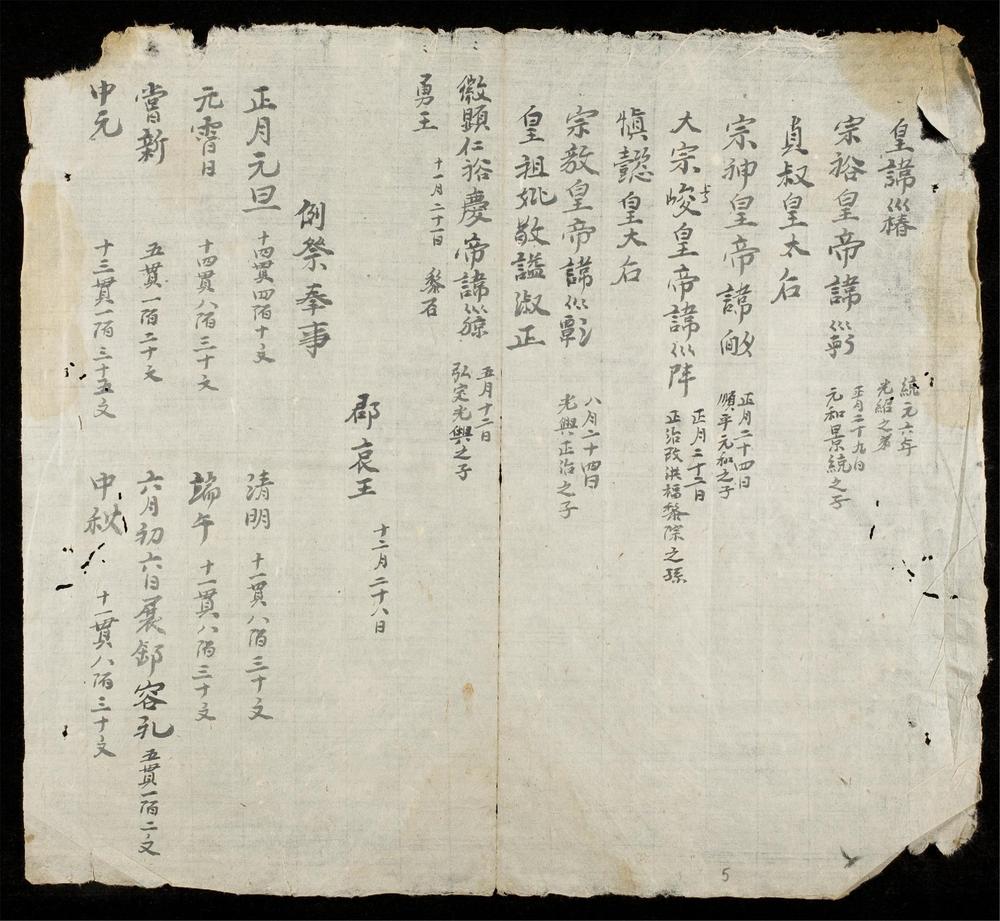 皇諱巛椿
統元六年
光紹之弟
宗裕皇帝諱
正月二十九日
元和景統之子
貞叔皇太后
宗神皇帝諱
正月二十四日
順平元和之子
大宗峻皇帝諱巛陣
正月二十二日
正治改洪福黎除之孫
慎懿皇大后
宗敎皇帝諱
八月二十四日
光興正治之子
皇祖妣敬謚淑正
徽顯仁裕慶帝諱
五月十二日
弘定光興之子
勇王 十一月二十一日 黎后
郡哀王 十二月二十八日
例祭奉事
正月元旦 十四貫四陌十文 清明 十一貫八陌三十文
元霄日 十四貫八陌三十文 端午 十一貫八陌三十文
嘗新 五貫一陌二十文 六月初六日展 容孔 五貫一陌二文
中元 十三貫一陌三十五文 中秋 十一貫八陌三十文
5